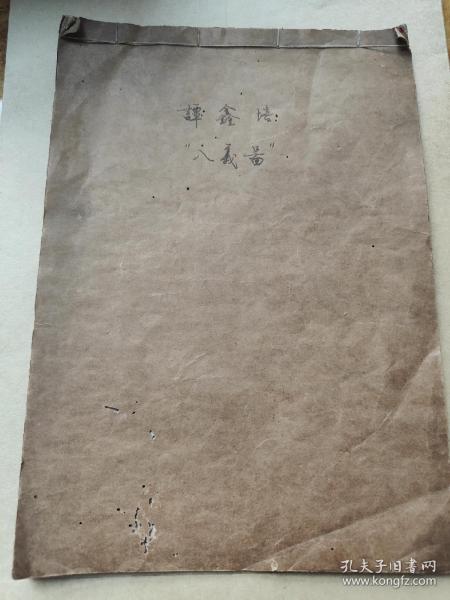 譚鑫培:
"八義图"
孔夫子旧书网
www.kongfz.com